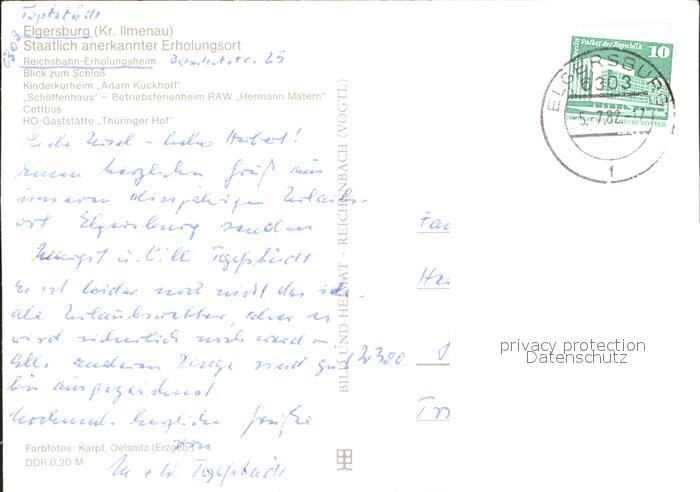 Elgersburg (Kr. Ilmenau)
6303
Staatlich anerkannter Erholungsort
Reichsbahn-Erholungsheim Bahnhofstr. 25
Blick zum Schloß
Kinderkurheim „Adam Kuckhoff"
„Schöffenhaus" – Betriebsferienheim RAW „Hermann Matern"
Cottbus
HO-Gaststätte „Thüringer Hof"
Liebe Ursel – lieber Herbert!
Einen herzlichen Gruß aus
unserem diesjährigen Urlaubs-
ort Elgersburg senden
Margit u. Willi
Es ist leider noch nicht das
ale Urlaubswetter, aber es
wird sicherlich noch werden.
Alle anderen Dinge sind gut
bis ausgezeichnet.
Nochmals herzliche Grüße
von
M. u. W.
Farbfotos: Karpf, Oelsnitz (Erzgeb.)
DDR 0,20 M
BILD UND HEIMAT · REICHENBACH (VOGTL)
Berlin Palast der Republik 10
ELGERSBURG
6303
-5.-7.82-17
f
Fam
2300
privacy protection
Datenschutz